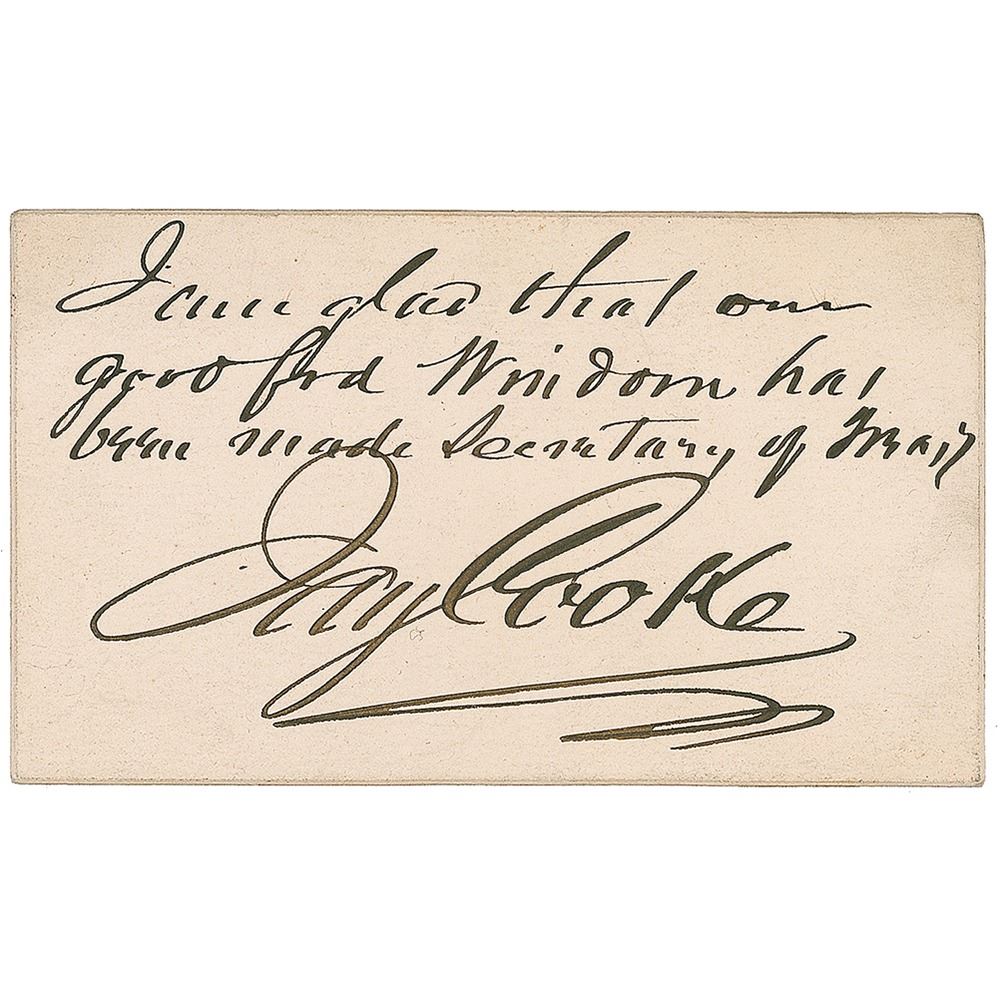 I am glad that our
good frd Windom has
been made Secretary of Treasy
Jay Cooke